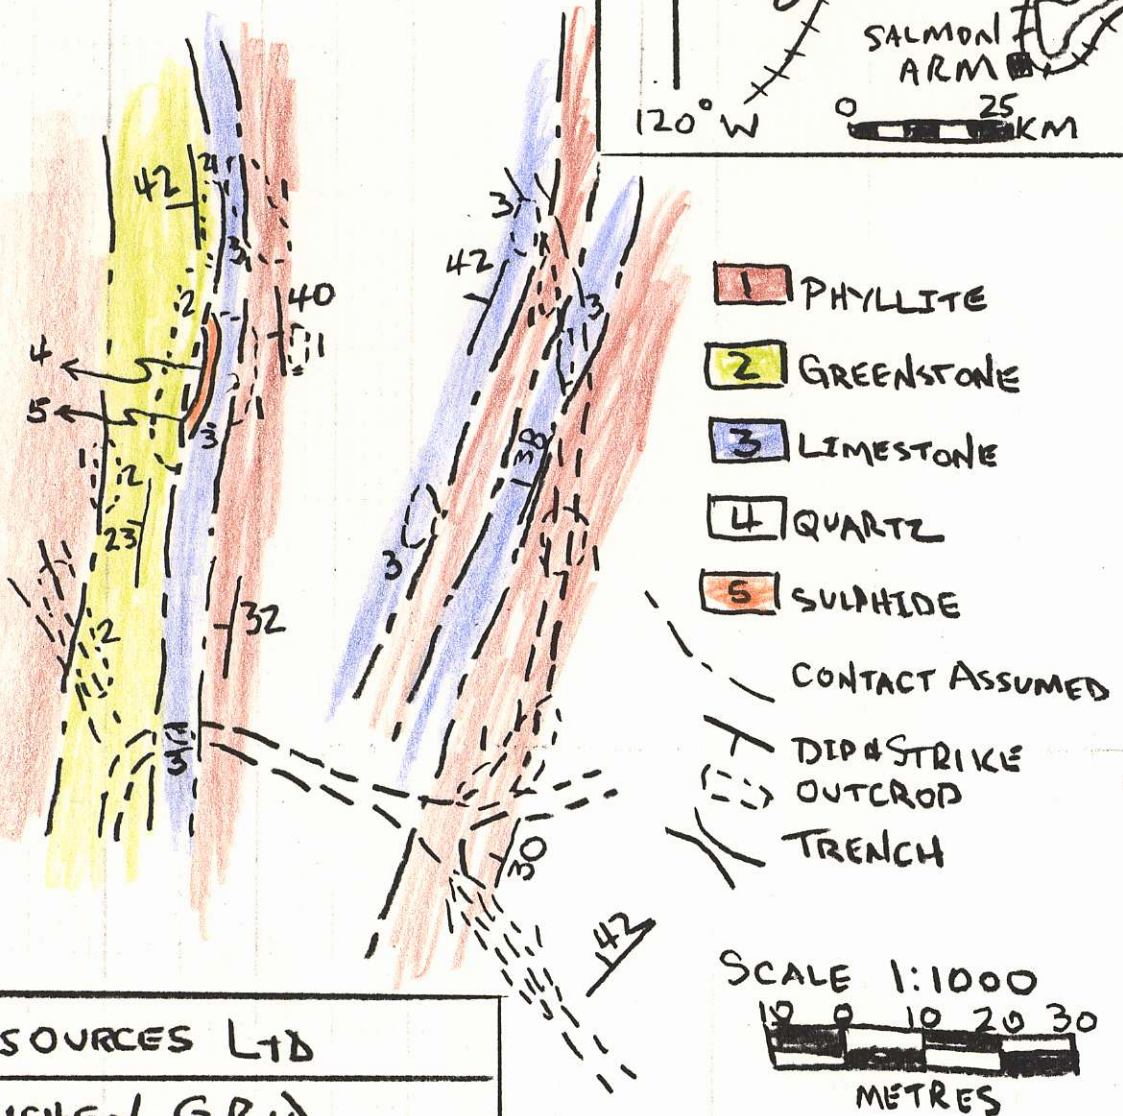 SALMON
ARM
120° W
0 25
KM
42
2
3
2
40
4
5
3
2
23
2
32
3
3
42
3
38
3
30
42
1 PHYLLITE
2 GREENSTONE
3 LIMESTONE
4 QUARTZ
5 SULPHIDE
CONTACT ASSUMED
DIP & STRIKE
OUTCROP
TRENCH
SCALE 1:1000
10 0 10 20 30
METRES
SOURCES LTD
GRID